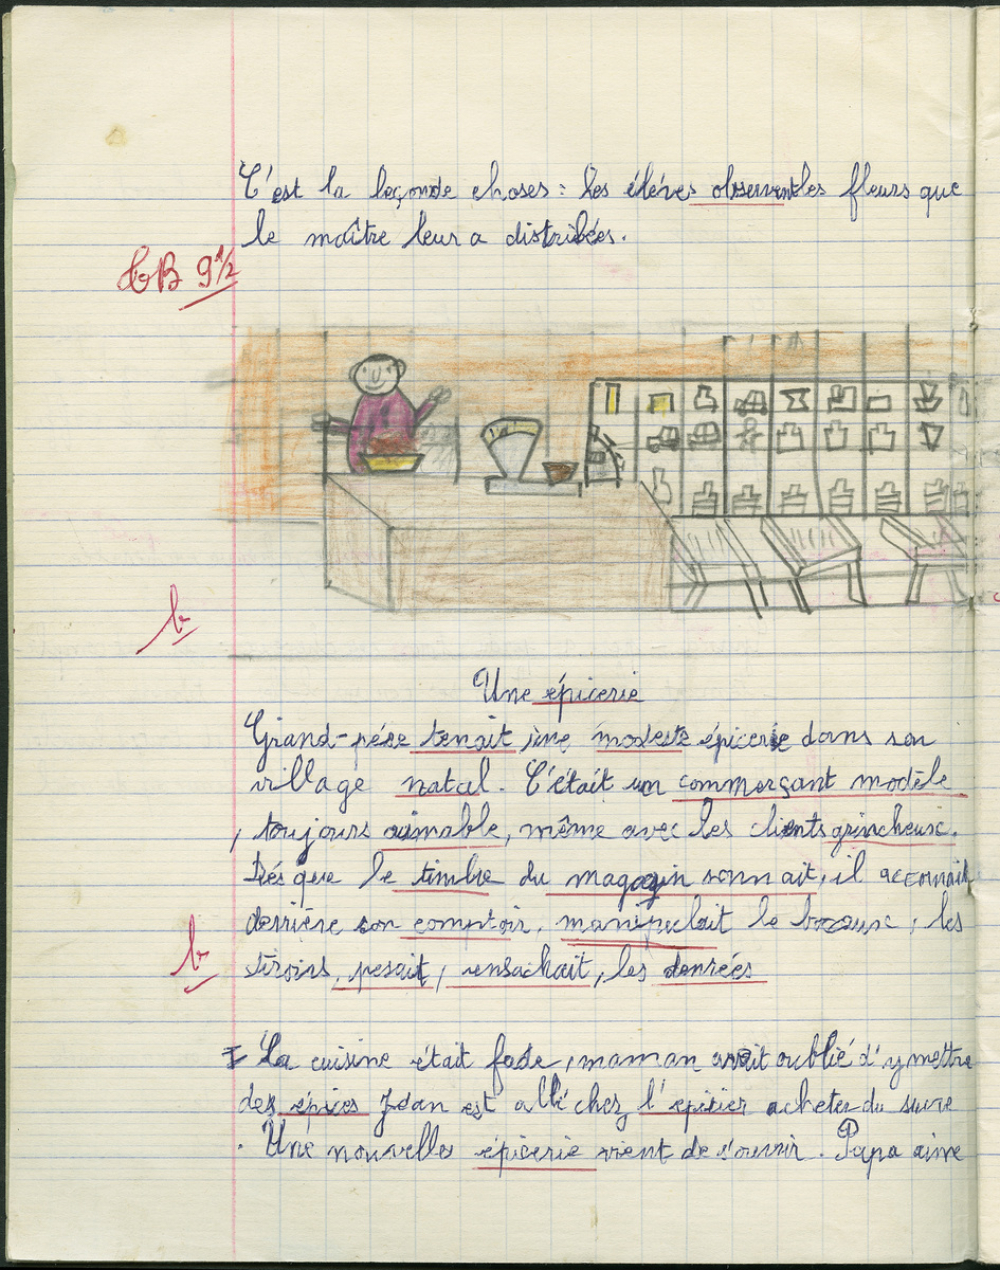 C'est la leçon de choses : les élèves observent les fleurs que
le maître leur a distribées.
TB 9 1/2
b
Une épicerie
Grand-père tenait une modeste épicerie dans son
village natal. C'était un commerçant modèle
, toujours aimable, même avec les clients grincheux.
Dès que le timbre du magazin sonnait, il accourait
derrière son comptoir, manipulait le bocaux, les
tiroirs, pesait, ensachait, les denrées
b
I La cuisine était fade, maman avait oublié d'y mettre
des épices Jean est allé chez l'épicier acheter du sucre
. Une nouvelle épicerie vient de s'ouvrir. Papa aime